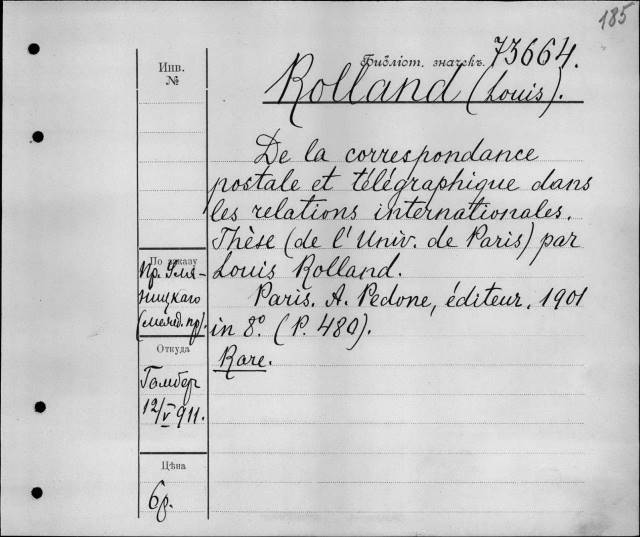 185
Библіот. значекъ. 73664.
Инв.
№
Rolland (Louis).
De la correspondance
postale et télégraphique dans
les relations internationales.
Thèse (de l'Univ. de Paris) par
Louis Rolland.
Paris. A. Pedone, éditeur. 1901
in 8º. (P. 480).
Rare.
По заказу
Пр. Уля-
ницкаго
(межд. пр).
Откуда
Гамбер
12/V 911.
Цѣна
6р.